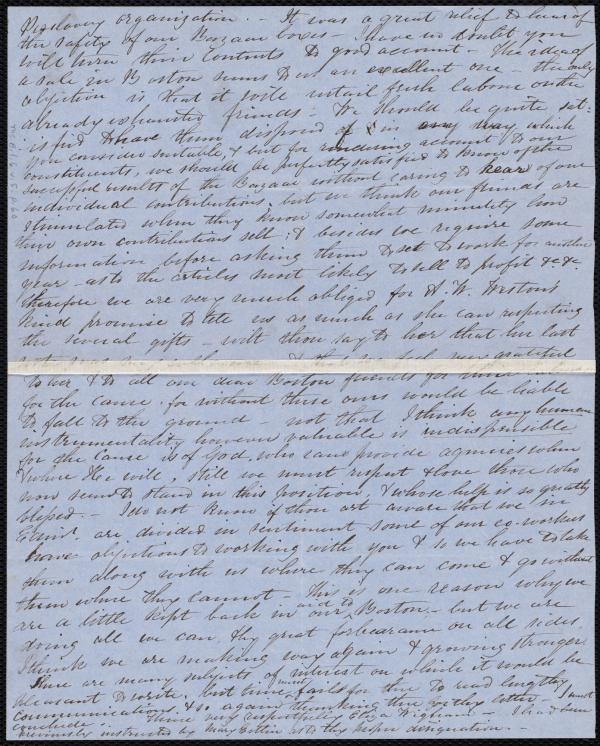 Antislavery organization. — It was a great relief to hear of
the safety of our Bazaar boxes — I have no doubt you
will turn their contents to good account — The idea of
a sale in Boston seems to us an excellent one — the only
objection is that it will entail fresh labour on the
already exhausted friends — We should be quite sat-
isfied to have them disposed of in any way which
you consider suitable, & but for rendering account to our
constituents, we should be perfectly satisfied to know of the
successful results of the Bazaar without caring to hear of our
individual contributions, but we think our friends are
stimulated when they know somewhat minutely how
their own contributions sell; & besides we require some
information before asking them to set to work for another
year — as to the articles most likely to sell to profit &c &c.
therefore we are very much obliged for A. W. Weston's
kind promise to tell us as much as she can respecting
the several gifts — wilt thou say to her that her last
grateful
to her & to all our dear Boston friends for their
for the cause. for without these ours would be liable
to fall to the ground — not that I think any human
instrumentality however valuable is indispensible
for the cause is of God, who can provide agencies when
& where He will, still we must respect & love those who
now seem to stand in this position, & whose help is so greatly
blessed — I do not know if thou art aware that we in
Edinr. are divided in sentiment — some of our co-workers
have objections to working with you & so we have to take
them along with us where they can come & go without
them where they cannot — This is one reason why we
are a little kept back in our and to Boston, — but we are
doing all we can, & by great forbearance on all sides
I think we are making way again & growing stronger
There are many subjects of interest on which it would be
pleasant to write, but time fails for thee to read lengthy
communications, & so again thanking thee for thy letter I must
conclude. Thine very respectfully Eliza Wigham — I had been
previously instructed by Mary Estlin as to thy proper designation —